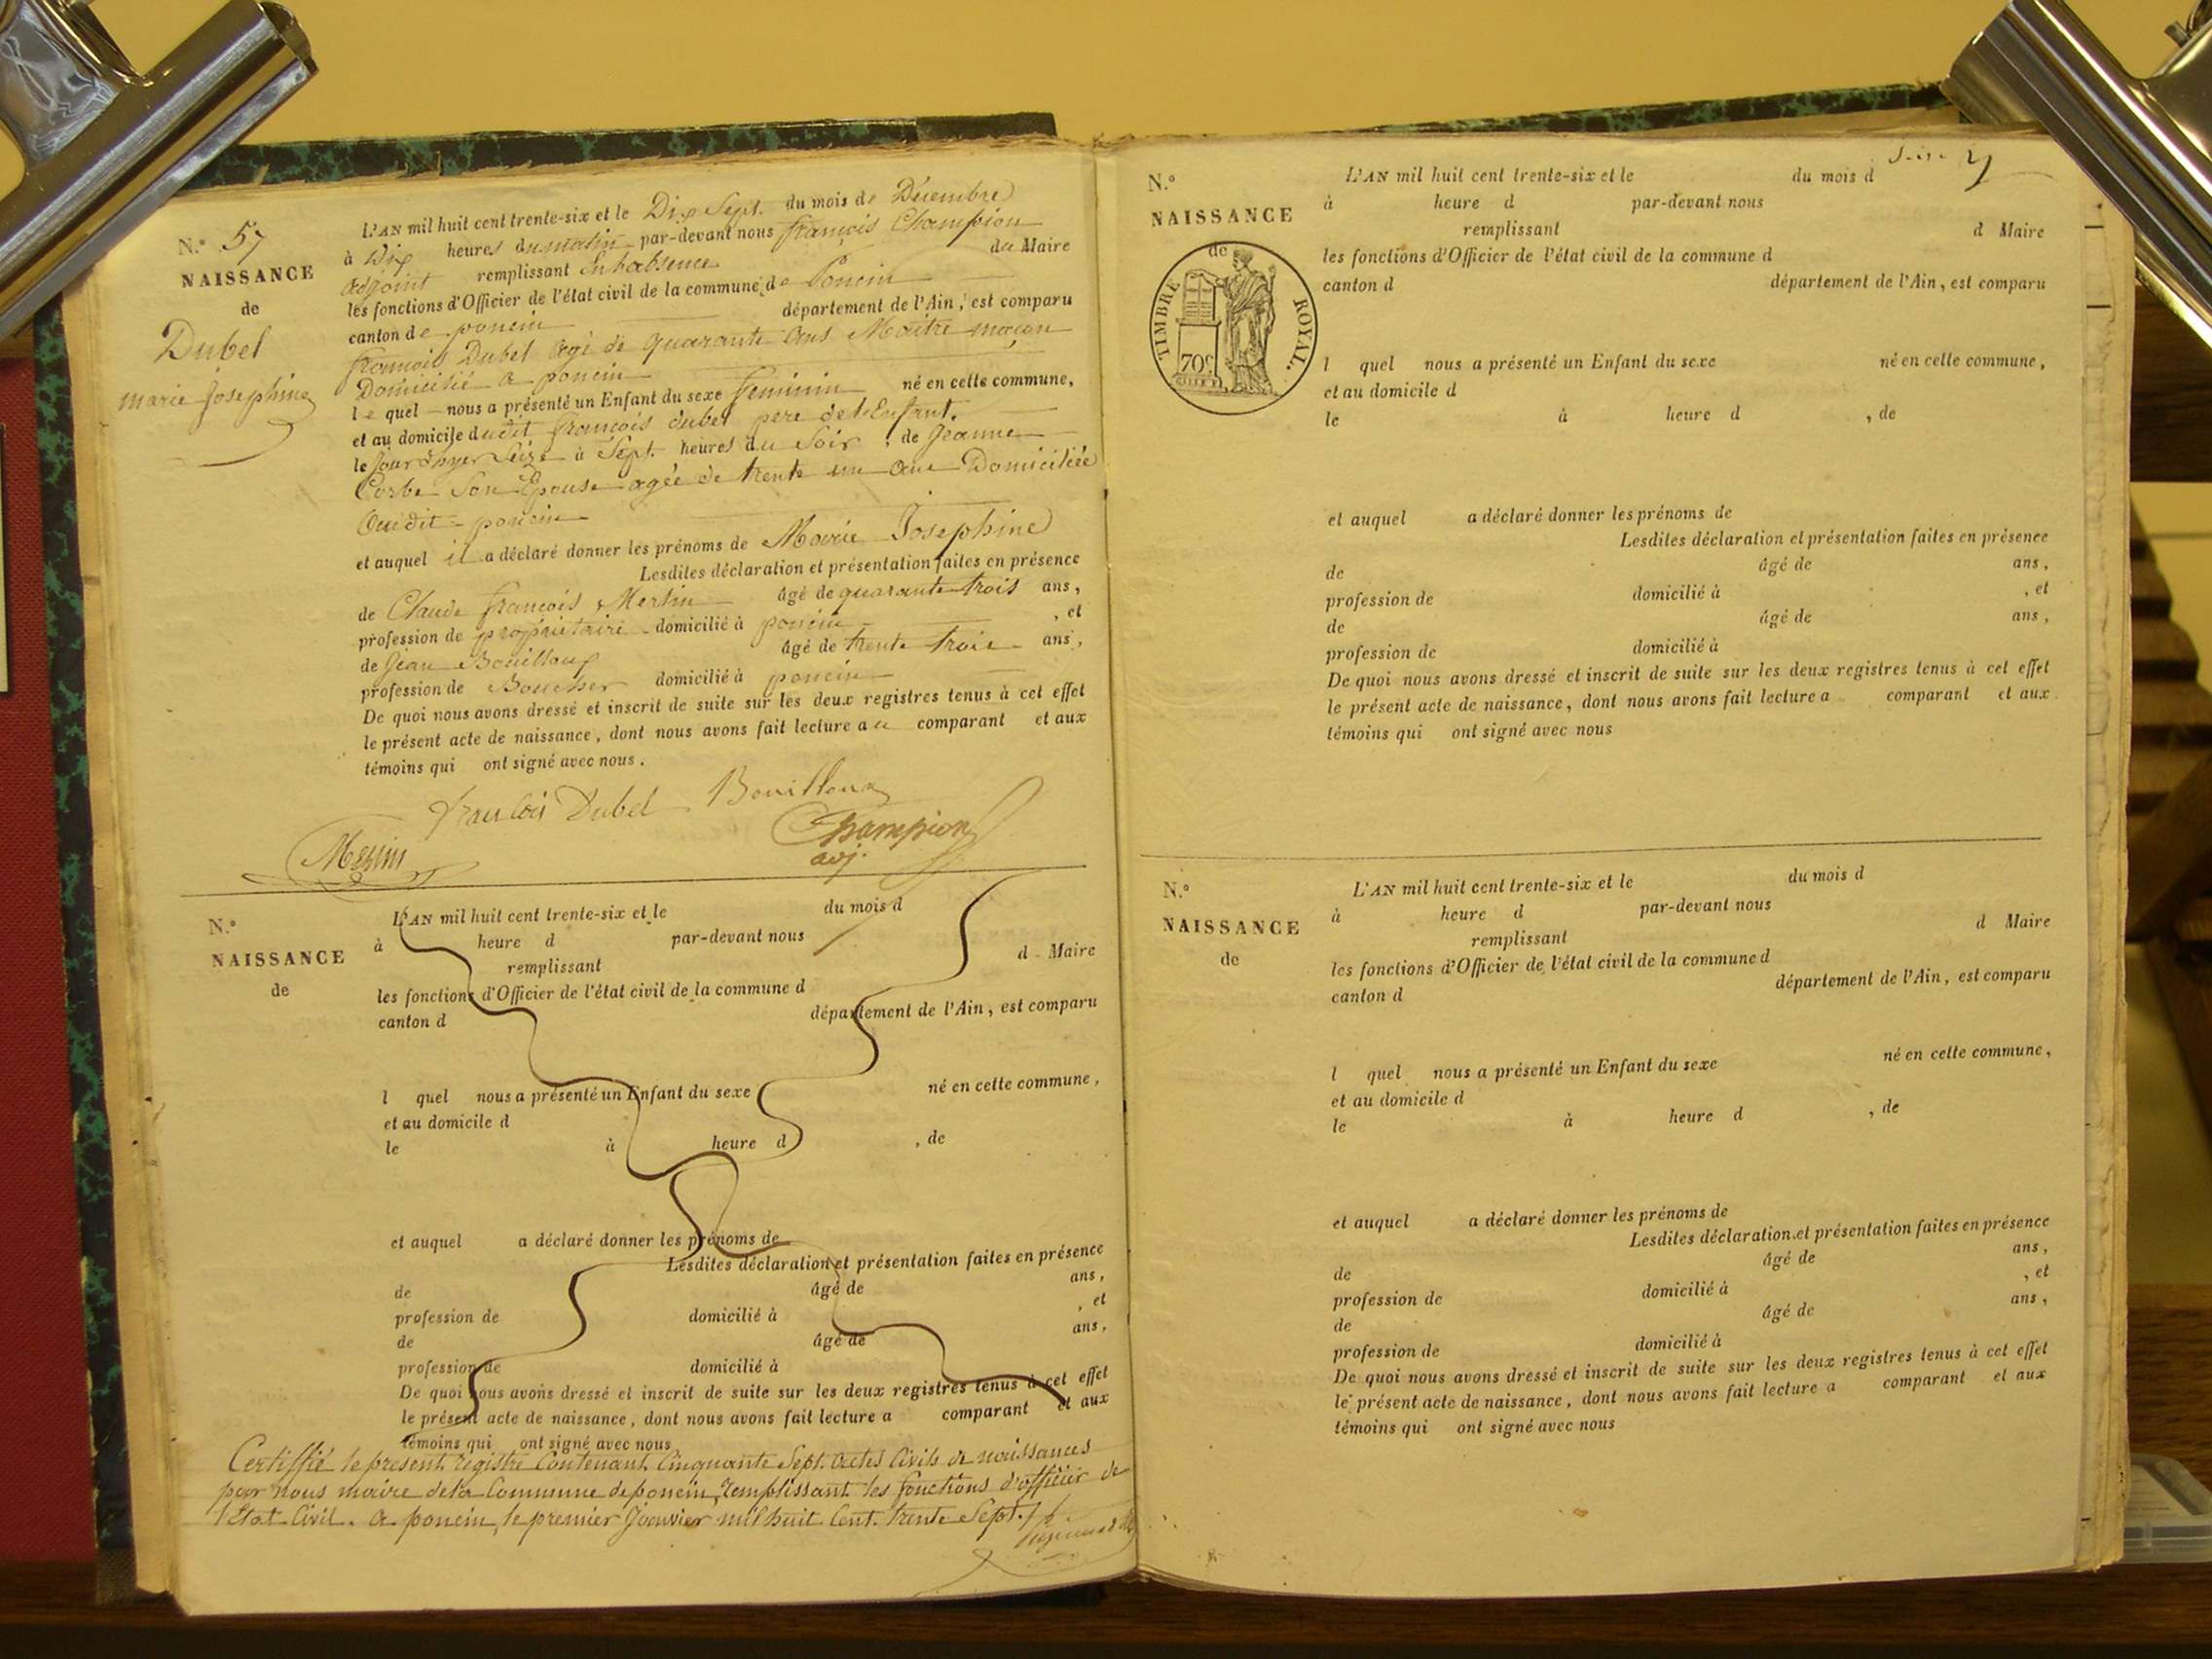 N.° 57
NAISSANCE
de
Dubel
marie Josephine
L'AN mil huit cent trente-six et le Dix Sept. du mois de Décembre
à Dix heures du matin par-devant nous françois Champion
adjoint remplissant En l'absence du Maire
les fonctions d'Officier de l'état civil de la commune de Poncin
canton de poncin département de l'Ain, est comparu
françois Dubel agé de quarante ans Maitre maçon
Domicilié a poncin
le quel nous a présenté un Enfant du sexe feminin né en cette commune,
et au domicile dudit françois dubel pere de l'Enfant.
le Jour d'hyer Seize à Sept heures du Soir, de Jeanne
Corbe Son Epouse agée de trente un ans Domiciliée
audit poncin
et auquel il a déclaré donner les prénoms de Marie Josephine
Lesdites déclaration et présentation faites en présence
de Claude françois Merlin âgé de quarante trois ans,
profession de propriétaire domicilié à poncin, et
de Jean Bouilloux âgé de trente trois ans,
profession de Boucher domicilié à poncin
De quoi nous avons dressé et inscrit de suite sur les deux registres tenus à cet effet
le présent acte de naissance, dont nous avons fait lecture au comparant et aux
témoins qui ont signé avec nous.
françois Dubel Bouilloux
Champion
adj.
N.°
NAISSANCE
de
L'AN mil huit cent trente-six et le du mois d
à heure d par-devant nous
remplissant d Maire
les fonctions d'Officier de l'état civil de la commune d
canton d département de l'Ain, est comparu
l quel nous a présenté un Enfant du sexe né en cette commune,
et au domicile d
le à heure d , de
et auquel a déclaré donner les prénoms de
Lesdites déclaration et présentation faites en présence
de âgé de ans,
profession de domicilié à , et
de âgé de ans,
profession de domicilié à
De quoi nous avons dressé et inscrit de suite sur les deux registres tenus à cet effet
le présent acte de naissance, dont nous avons fait lecture a comparant et aux
témoins qui ont signé avec nous
Certiffié le present registre Contenant Cinquante Sept actes Civils de naissances
par nous maire de la Commune de poncin, remplissant les fonctions d'officier de
l'Etat Civil. a poncin, le premier Janvier mil huit Cent trente Sept.
N.°
NAISSANCE
de
TIMBRE ROYAL.
70c
L'AN mil huit cent trente-six et le du mois d
à heure d par-devant nous
remplissant d Maire
les fonctions d'Officier de l'état civil de la commune d
canton d département de l'Ain, est comparu
l quel nous a présenté un Enfant du sexe né en cette commune,
et au domicile d
le à heure d , de
et auquel a déclaré donner les prénoms de
Lesdites déclaration et présentation faites en présence
de âgé de ans,
profession de domicilié à , et
de âgé de ans,
profession de domicilié à
De quoi nous avons dressé et inscrit de suite sur les deux registres tenus à cet effet
le présent acte de naissance, dont nous avons fait lecture a comparant et aux
témoins qui ont signé avec nous
N.°
NAISSANCE
de
L'AN mil huit cent trente-six et le du mois d
à heure d par-devant nous
remplissant d Maire
les fonctions d'Officier de l'état civil de la commune d
canton d département de l'Ain, est comparu
l quel nous a présenté un Enfant du sexe né en cette commune,
et au domicile d
le à heure d , de
et auquel a déclaré donner les prénoms de
Lesdites déclaration et présentation faites en présence
de âgé de ans,
profession de domicilié à , et
de âgé de ans,
profession de domicilié à
De quoi nous avons dressé et inscrit de suite sur les deux registres tenus à cet effet
le présent acte de naissance, dont nous avons fait lecture a comparant et aux
témoins qui ont signé avec nous